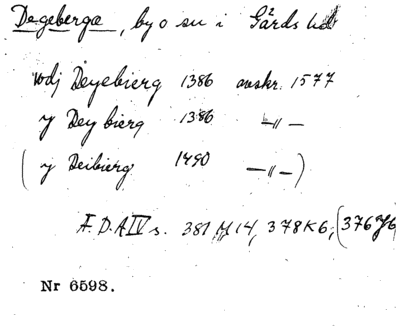 Degeberga, by o sn i Gärds hd
vdj Deyebierg 1386 avskr. 1577
y Dey bierg 1386 —"—
(y Deibierg 1490 —"—)
Æ.D.A IV s. 381 M 14, 378 K 6, (376 Y 6
Nr 6598.